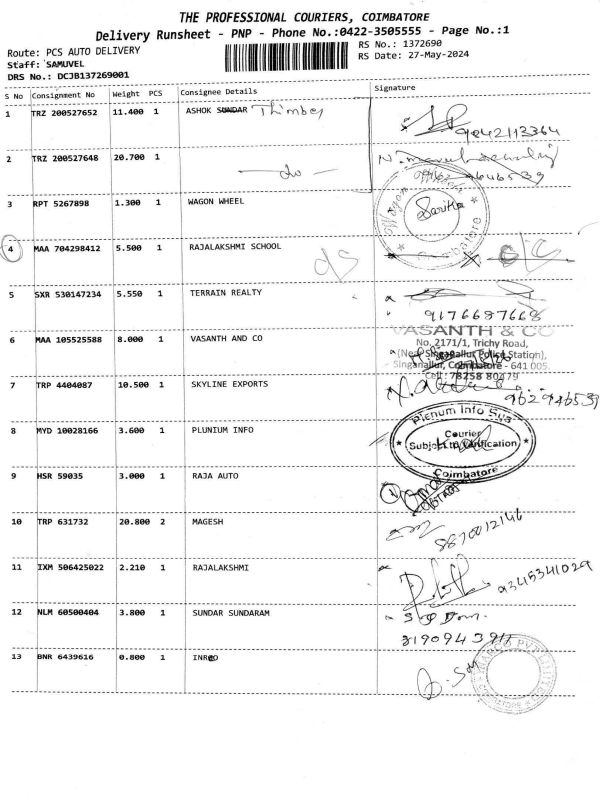 THE PROFESSIONAL COURIERS, COIMBATORE
Delivery Runsheet - PNP - Phone No.:0422-3505555 - Page No.:1
Route: PCS AUTO DELIVERY RS No.: 1372690
Staff: SAMUVEL RS Date: 27-May-2024
DRS No.: DCJB137269001
S No Consignment No Weight PCS Consignee Details Signature
1 TRZ 200527652 11.400 1 ASHOK SUNDAR Thimbey
9842113364
2 TRZ 200527648 20.700 1 - do -
3 RPT 5267898 1.300 1 WAGON WHEEL
Wagon
Saritha
Coimbatore
4 MAA 704298412 5.500 1 RAJALAKSHMI SCHOOL
5 SXR 530147234 5.550 1 TERRAIN REALTY
9176687668
6 MAA 105525588 8.000 1 VASANTH AND CO
VASANTH & CO
No. 2171/1, Trichy Road,
(Near Singanallur Police Station),
Singanallur, Coimbatore - 641 005.
Cell: 78258 80479
7 TRP 4404087 10.500 1 SKYLINE EXPORTS
962 946539
8 MYD 10028166 3.600 1 PLUNIUM INFO
Plenum Info Sys
Courier
Subject to Verification
Coimbatore
9 HSR 59035 3.000 1 RAJA AUTO
10 TRP 631732 20.800 2 MAGESH
8870012146
11 IXM 506425022 2.210 1 RAJALAKSHMI
9345341029
12 NLM 60500404 3.800 1 SUNDAR SUNDARAM
8190943911
13 BNR 6439616 0.800 1 INRCO
COIMBATORE